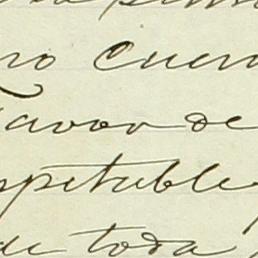 no cuen
favor de
spetable
de toda